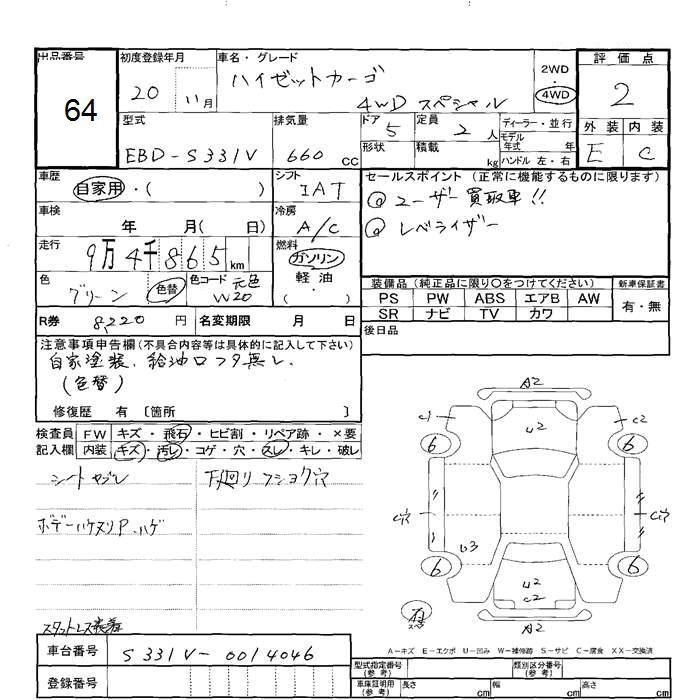 出品番号
64
初度登録年月
20 11月
車名・グレード
ハイゼットカーゴ
4WD スペシャル
2WD
4WD
評価点
2
外装 内装
E C
型式
EBD-S331V
排気量
660 cc
ドア 5
形状
定員 2人
積載 kg
ディーラー・並行
モデル年式 年
ハンドル 左・右
車歴
自家用・( )
シフト
IAT
車検
年 月( 日)
冷房
A/C
走行
9万4千865 km
燃料
ガソリン
軽油
・
色
グリーン
色替
色コード 元色
W20
R券 8,220 円
名変期限 月 日
セールスポイント (正常に機能するものに限ります)
@ユーザー買取車!!
@レベライザー
装備品 (純正品に限り○をつけてください)
新車保証書
PS PW ABS エアB AW
有・無
SR ナビ TV カワ
後日品
注意事項申告欄(不具合内容等は具体的に記入して下さい)
自家塗装、給油口フタ無し
(色替)
修復歴 有 〔箇所 〕
検査員記入欄
FW キズ・飛石・ヒビ割・リペア跡・×要
内装 キズ・汚レ・コゲ・穴・スレ・キレ・破レ
シートヤブレ
下廻りフショク穴
ボデーハケヌリP.ハゲ
スタットレス装着
A2
C1 U2 C2
6 6
C穴 C穴
U3
6 6
U2
C2
A2
A-キズ E-エクボ U-凹み W-補修跡 S-サビ C-腐食 XX-交換済
車台番号 S331V-0014046
登録番号
型式指定番号(参考)
類別区分番号(参考)
車庫証明用(参考) 長さ cm 幅 cm 高さ cm